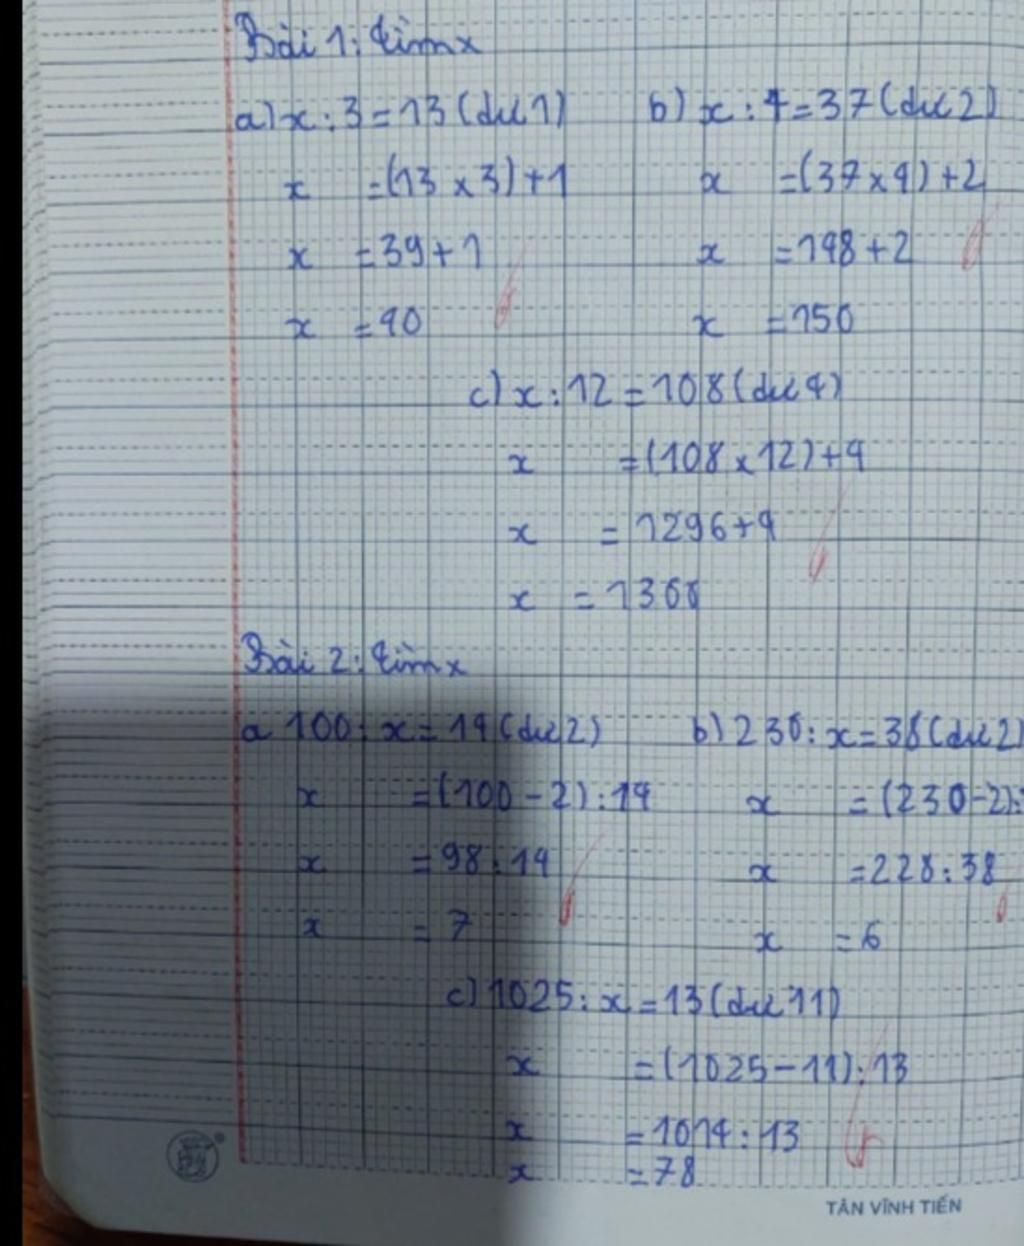 Bài 1: tìm x
a) x : 3 = 13 (dư 1) b) x : 4 = 37 (dư 2)
x = (13 x 3) + 1 x = (37 x 4) + 2
x = 39 + 1 x = 148 + 2
x = 40 x = 150
c) x : 12 = 108 (dư 4)
x = (108 x 12) + 4
x = 1296 + 4
x = 1300
Bài 2: tìm x
a 100 : x = 14 (dư 2) b) 230 : x = 38 (dư 2)
x = (100 - 2) : 14 x = (230 - 2) :
x = 98 : 14 x = 228 : 38
x = 7 x = 6
c) 1025 : x = 13 (dư 11)
x = (1025 - 11) : 13
x = 1014 : 13
x = 78
TÂN VĨNH TIẾN